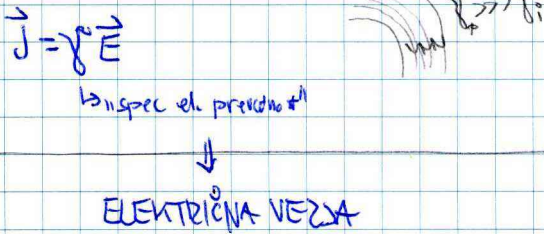 J⃗ = γ E⃗
γₚ >>> γᵢ
↳ „spec el. prevodnost"
⇓
ELEKTRIČNA VEZJA